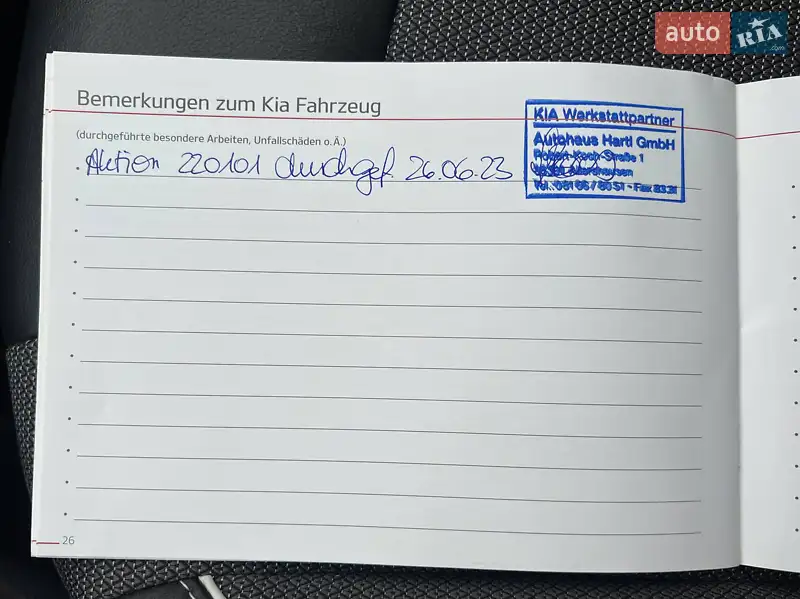 auto RIA
.com
Bemerkungen zum Kia Fahrzeug
(durchgeführte besondere Arbeiten, Unfallschäden o.Ä.)
Aktion 220101 durchgef. 26.06.23
KIA Werkstattpartner
Autohaus Hartl GmbH
Robert-Koch-Straße 1
Tel.: 081 66 / 80 51 - Fax 83 21
26